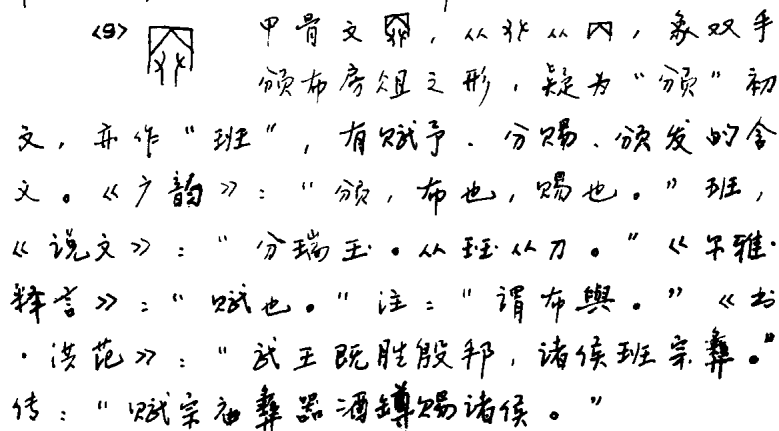 <9> 甲骨文,从𠬞从内,象双手
颁布房俎之形,疑为“颁”初
文,亦作“班”,有赋予、分赐、颁发的含
义。《广韵》:“颁,布也,赐也。”班,
《说文》:“分瑞玉。从玨从刀。”《尔雅·
释言》:“赋也。”注:“谓布與。”《书
·洪范》:“武王既胜殷邦,诸侯班宗彝。”
传:“赋宗庙彝器酒罇赐诸侯。”